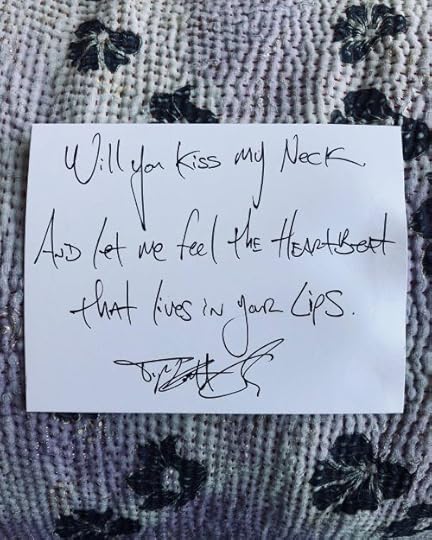 Will you kiss my Neck
AND let me feel the HEARTBEAT
that lives in your Lips.